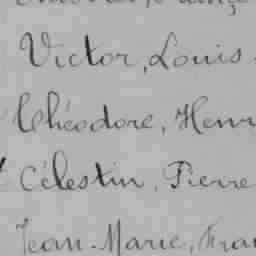 Victor, Louis
Théodore, Henr
Célestin, Pierre
Jean-Marie, Fran